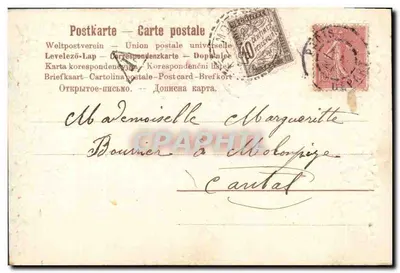 Postkarte - Carte postale
Weltpostverein - Union postale universelle
Levelező-Lap - Correspondenzkarte - Dopisnice
Karta korespondencyjna - Korespondenční lístek
Briefkaart - Cartolina postale - Post-card - Brefkort
Открытое письмо. - Дописна карта.
Mademoiselle Marguerite
Bournier à Molompize
Cantal